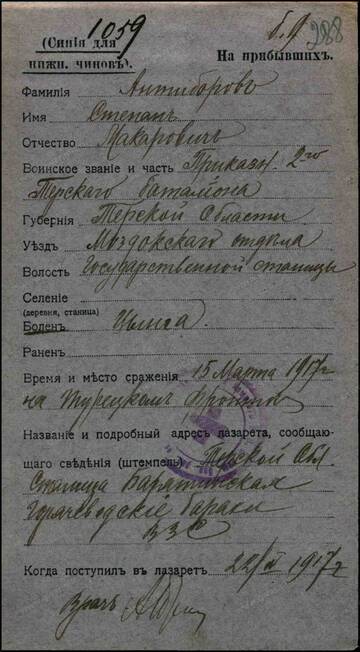 1059
б. 9
288
(Синія для
нижн. чиновъ).
На прибывшихъ.
Фамилія Антиборовъ
Имя Степанъ
Отчество Макаровичъ
Воинское званіе и часть Приказн. 2го
Терскаго баталіона
Губернія Терской Области
Уѣздъ Моздокскаго отдѣла
Волость Государственной станицы
Селеніе
(деревня, станица)
Боленъ Цынга.
Раненъ
Время и мѣсто сраженія 15 Марта 1917г
на Турецкомъ фронтѣ
Названіе и подробный адресъ лазарета, сообщаю-
щаго свѣдѣнія (штемпель) Терской Обл
Станица Барятинская
Горячеводскіе бараки
ВЗС
Когда поступилъ въ лазаретъ 1917г
Врачъ